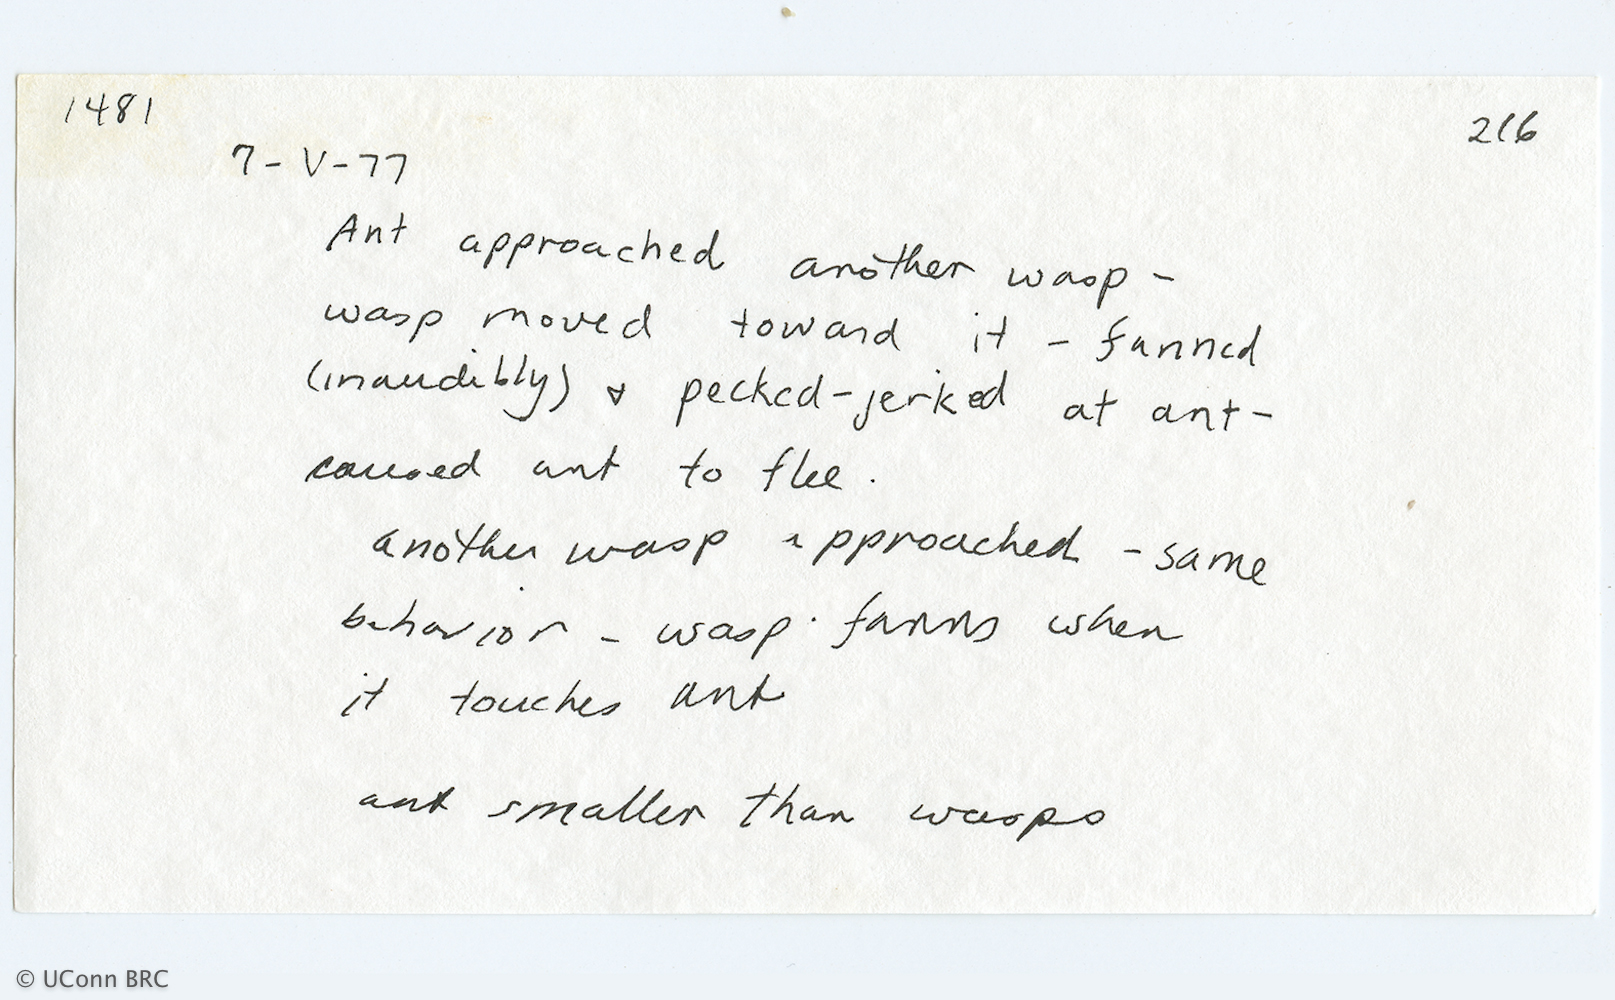 1481
216
7-V-77
Ant approached another wasp -
wasp moved toward it - fanned
(inaudibly) & pecked-jerked at ant-
caused ant to flee.
another wasp approached - same
behavior - wasp fanns when
it touches ant
ant smaller than wasps
© UConn BRC